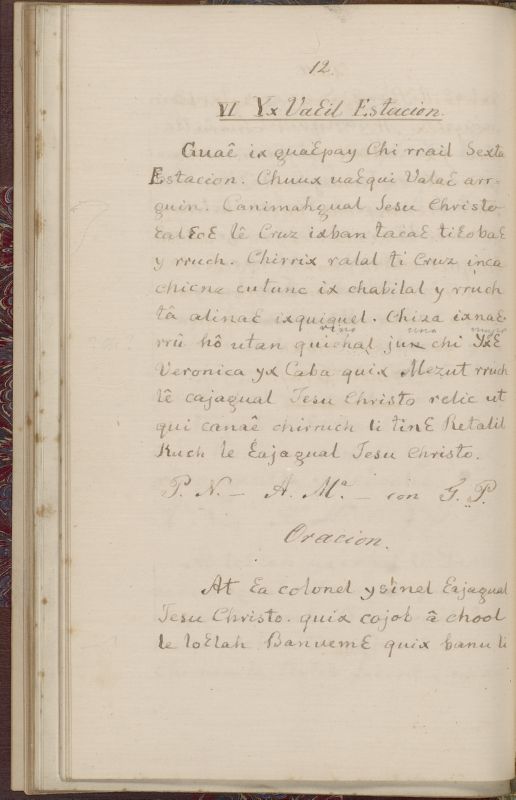 12.
VI Yx Vaɛil Estacion.
Guaê ix guaɛpay Chi rrail Sexta
Estacion. Chuux uaɛqui Valaɛ arr-
guin. Canimahgual Jesu Christo
ɛalɛoɛ lê Cruz ixban tacaɛ tiɛobaɛ
y rruch. Chirrix ralal ti Cruz inca
chicnz cutunc ix chabilal y rruch
tâ alinaɛ ixquiquel. Chiza ixnaɛ
vino una muger
rrû hô utan quichal jun chi Yxɛ
Veronica yx Caba quix Mezut rruch
lê cajagual Jesu Christo relic ut
qui canaê chirruch li tinɛ Retalil
Ruch le ɛajagual Jesu Christo.
P. N. — A. M.ª — con G. P.
Oracion.
At ɛa colonel ysinel ɛajagual
Jesu Christo. quix cojob â chool
le loɛlah Banuemɛ quix banu li